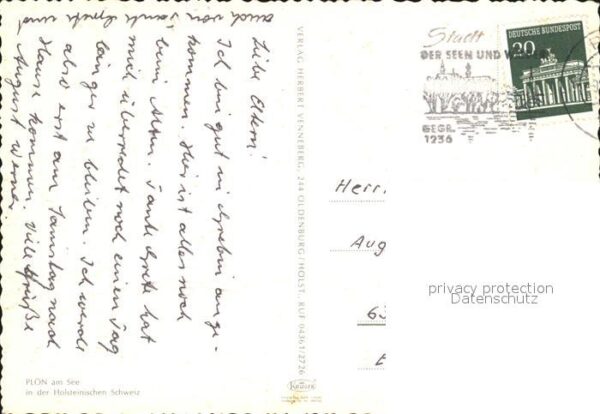 Liebe Eltern!
Ich bin gut in angekom-
kommen. Hier ist alles noch
beim Alten. Tante Grete hat
mich überredet noch einen Tag
länger zu bleiben. Ich werde
also erst am Samstag nach
Haus kommen. Viele Grüße
August Werner
auch von Tante Grete und
VERLAG HERBERT VENNEBERG, 244 OLDENBURG/HOLST., RUF 04361/2726
Stadt
DER SEEN UND WÄLDER
GEGR.
1236
DEUTSCHE BUNDESPOST
20
Herr
Aug
63
privacy protection
Datenschutz
PLÖN am See
in der Holsteinischen Schweiz
Krüger